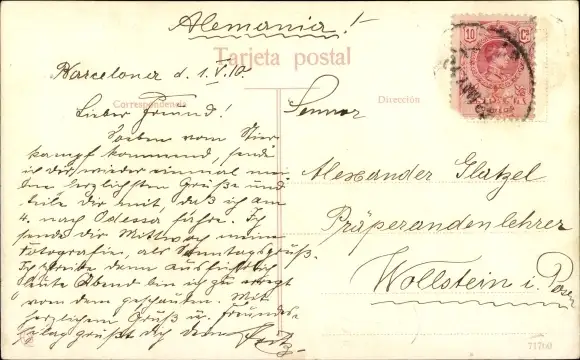 Alemania!
Tarjeta postal
10 Cs
Barcelona d. 1.V.10
Correspondencia
Dirección
Lieber Freund!
Soeben vom Stier
kampf kommend, sende
ich dir wieder einmal mei
ne herzlichsten Grüße und
teile dir mit, daß ich am
4. nach Odessa fahre. Ich
sende dir Mittwoch meine
Fotografien, als Sonntagsgruß.
Ich schreibe dann ausführlich
heute Abend bin ich zu erregt
von dem geschauten. Mit
herzlichem Gruß u. Freundes-
heilag grüßt dich dein Fritz.
Sennor
Alexander Glatzel
Präperandenlehrer
Wollstein i. Posen
71700